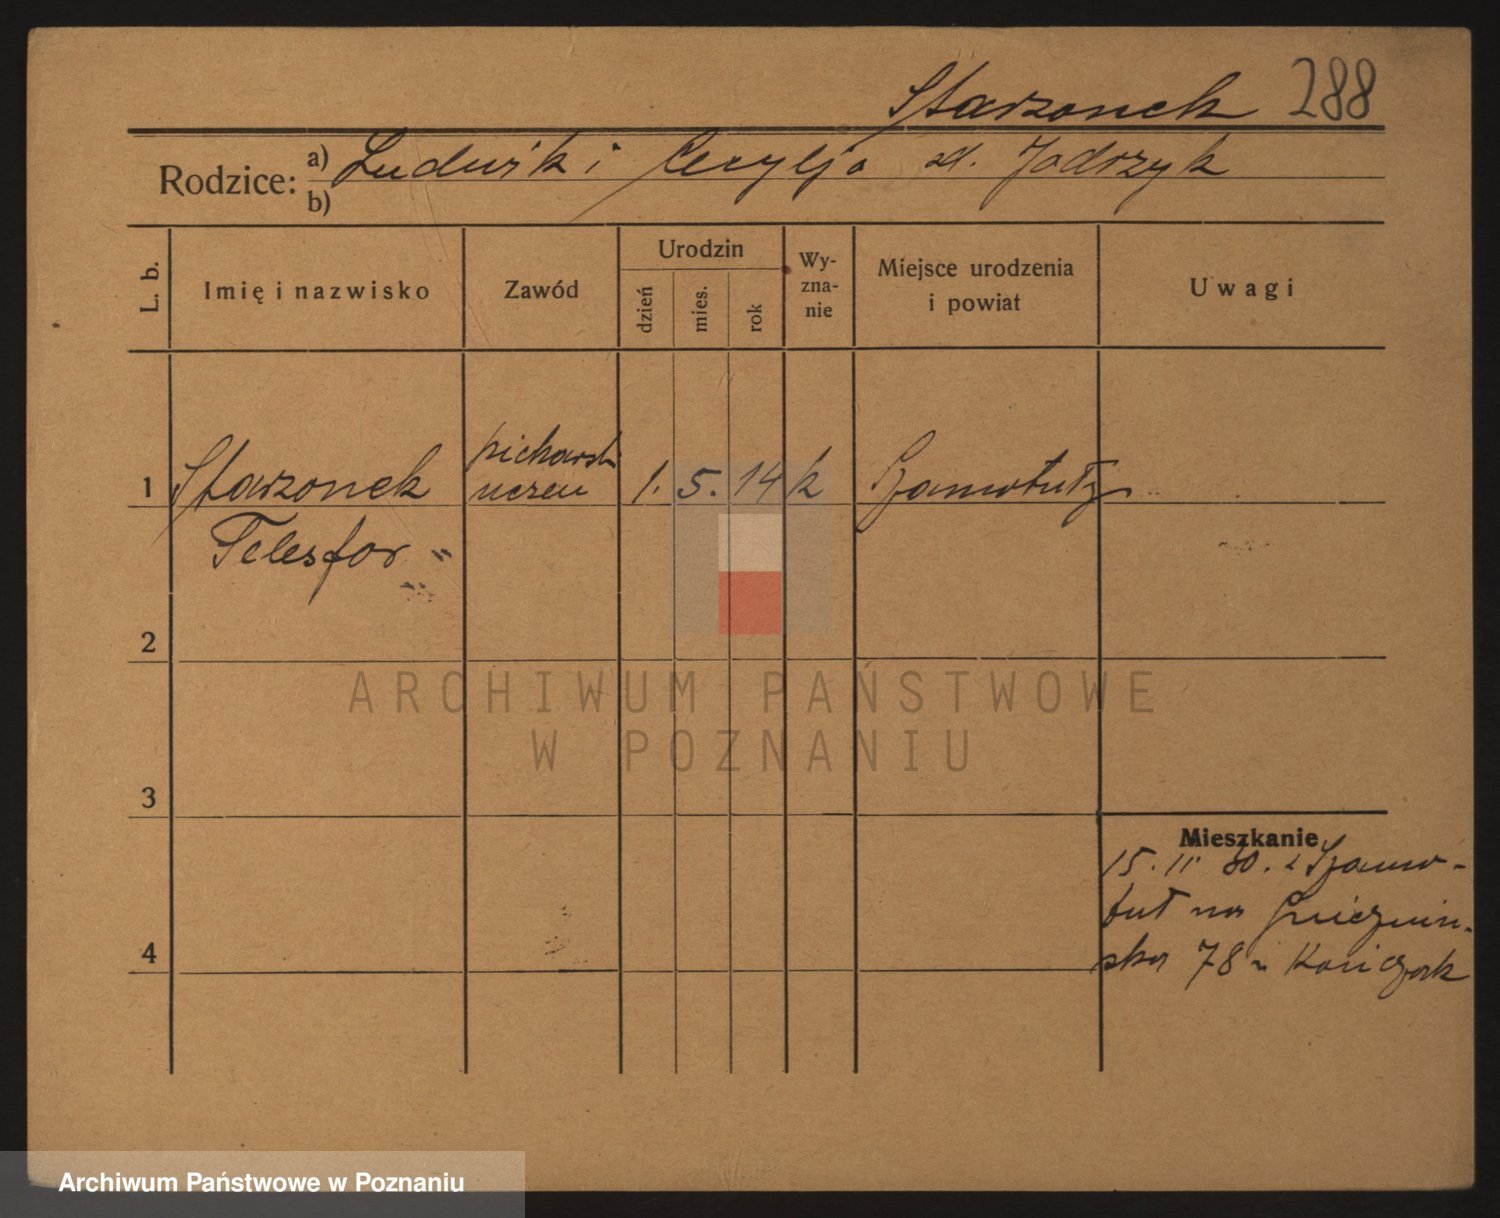 Starzonek 288
Rodzice: a) Ludwik i Cecylja zd. Jadrzyk
b)
L. b.
Imię i nazwisko
Zawód
Urodzin
dzień
mies.
rok
Wy-
zna-
nie
Miejsce urodzenia
i powiat
Uwagi
1 Starzonek
Telesfor
piekarski
uczeń
1. 5. 14 k Szamotuły
2
3
4
Mieszkanie
15. 11. 30. z Szamo-
tuł na
ska 78
ARCHIWUM PAŃSTWOWE
W POZNANIU
Archiwum Państwowe w Poznaniu